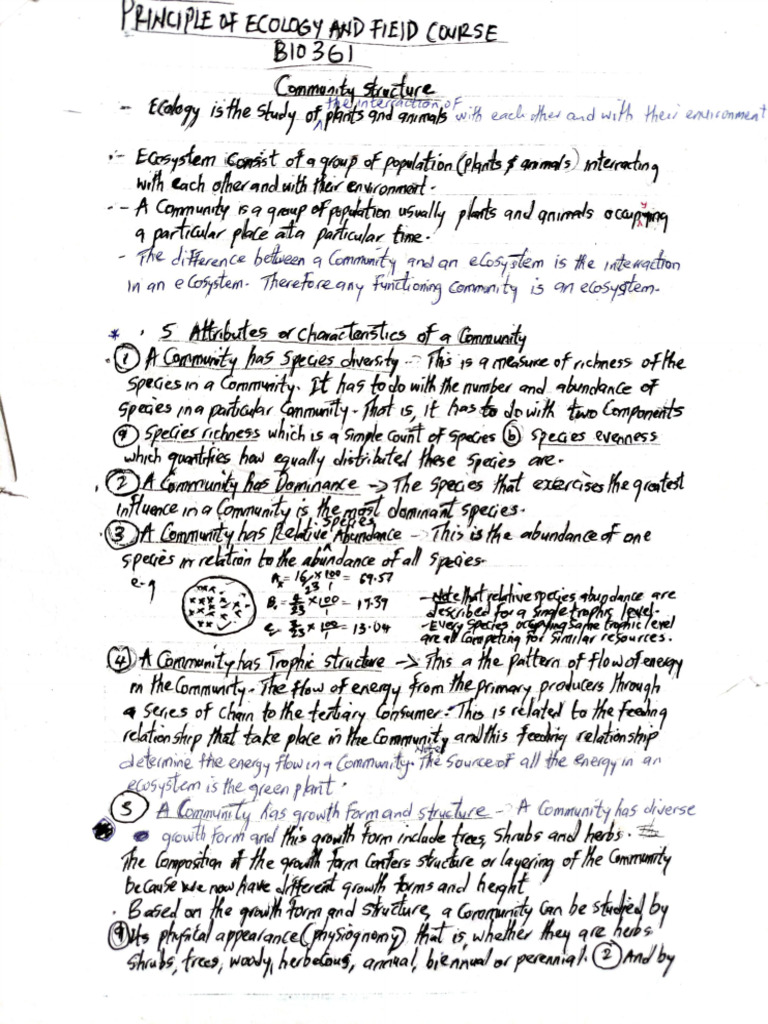 PRINCIPLE OF ECOLOGY AND FIELD COURSE
BIO 361
Community Structure
- Ecology is the study of the interraction of plants and animals with each other and with their environment
- Ecosystem consist of a group of population (plants & animals) interracting
with each other and with their environment.
- A Community is a group of population usually plants and animals occupying
a particular place at a particular time.
- The difference between a Community and an ecosystem is the interraction
in an ecosystem. Therefore any functioning community is an ecosystem.
* 5 Attributes or characteristics of a Community
① A Community has Species diversity - This is a measure of richness of the
Species in a Community. It has to do with the number and abundance of
Species in a particular Community. That is, it has to do with two Components
ⓐ Species richness which is a simple count of species ⓑ species evenness
which quantifies how equally distributed these species are.
② A Community has Dominance -> The species that exercises the greatest
influence in a Community is the most dominant species.
③ A Community has Relative Species Abundance - This is the abundance of one
species in relation to the abundance of all species.
e.g
A = 16/23 × 100/1 = 69.57
B = 4/23 × 100/1 = 17.39
C = 3/23 × 100/1 = 13.04
- Note that relative species abundance are
described for a single trophic level.
- Every species occupying same trophic level
are all competing for similar resources.
④ A Community has Trophic structure -> This a the pattern of flow of energy
in the Community. The flow of energy from the primary producers through
a series of chain to the tertiary consumer. This is related to the feeding
relationship that take place in the Community and this feeding relationship
determine the energy flow in a Community. Note: The source of all the energy in an
ecosystem is the green plant.
⑤ A Community has growth form and structure - A Community has diverse
growth form and this growth form include trees, shrubs and herbs.
The composition of the growth form confers structure or layering of the Community
because we now have different growth forms and height
. Based on the growth form and structure, a Community can be studied by
Its physical appearance (physiognomy) that is, whether they are herbs
shrubs, trees, woody, herbacous, annual, biennual or perennial. ② And by